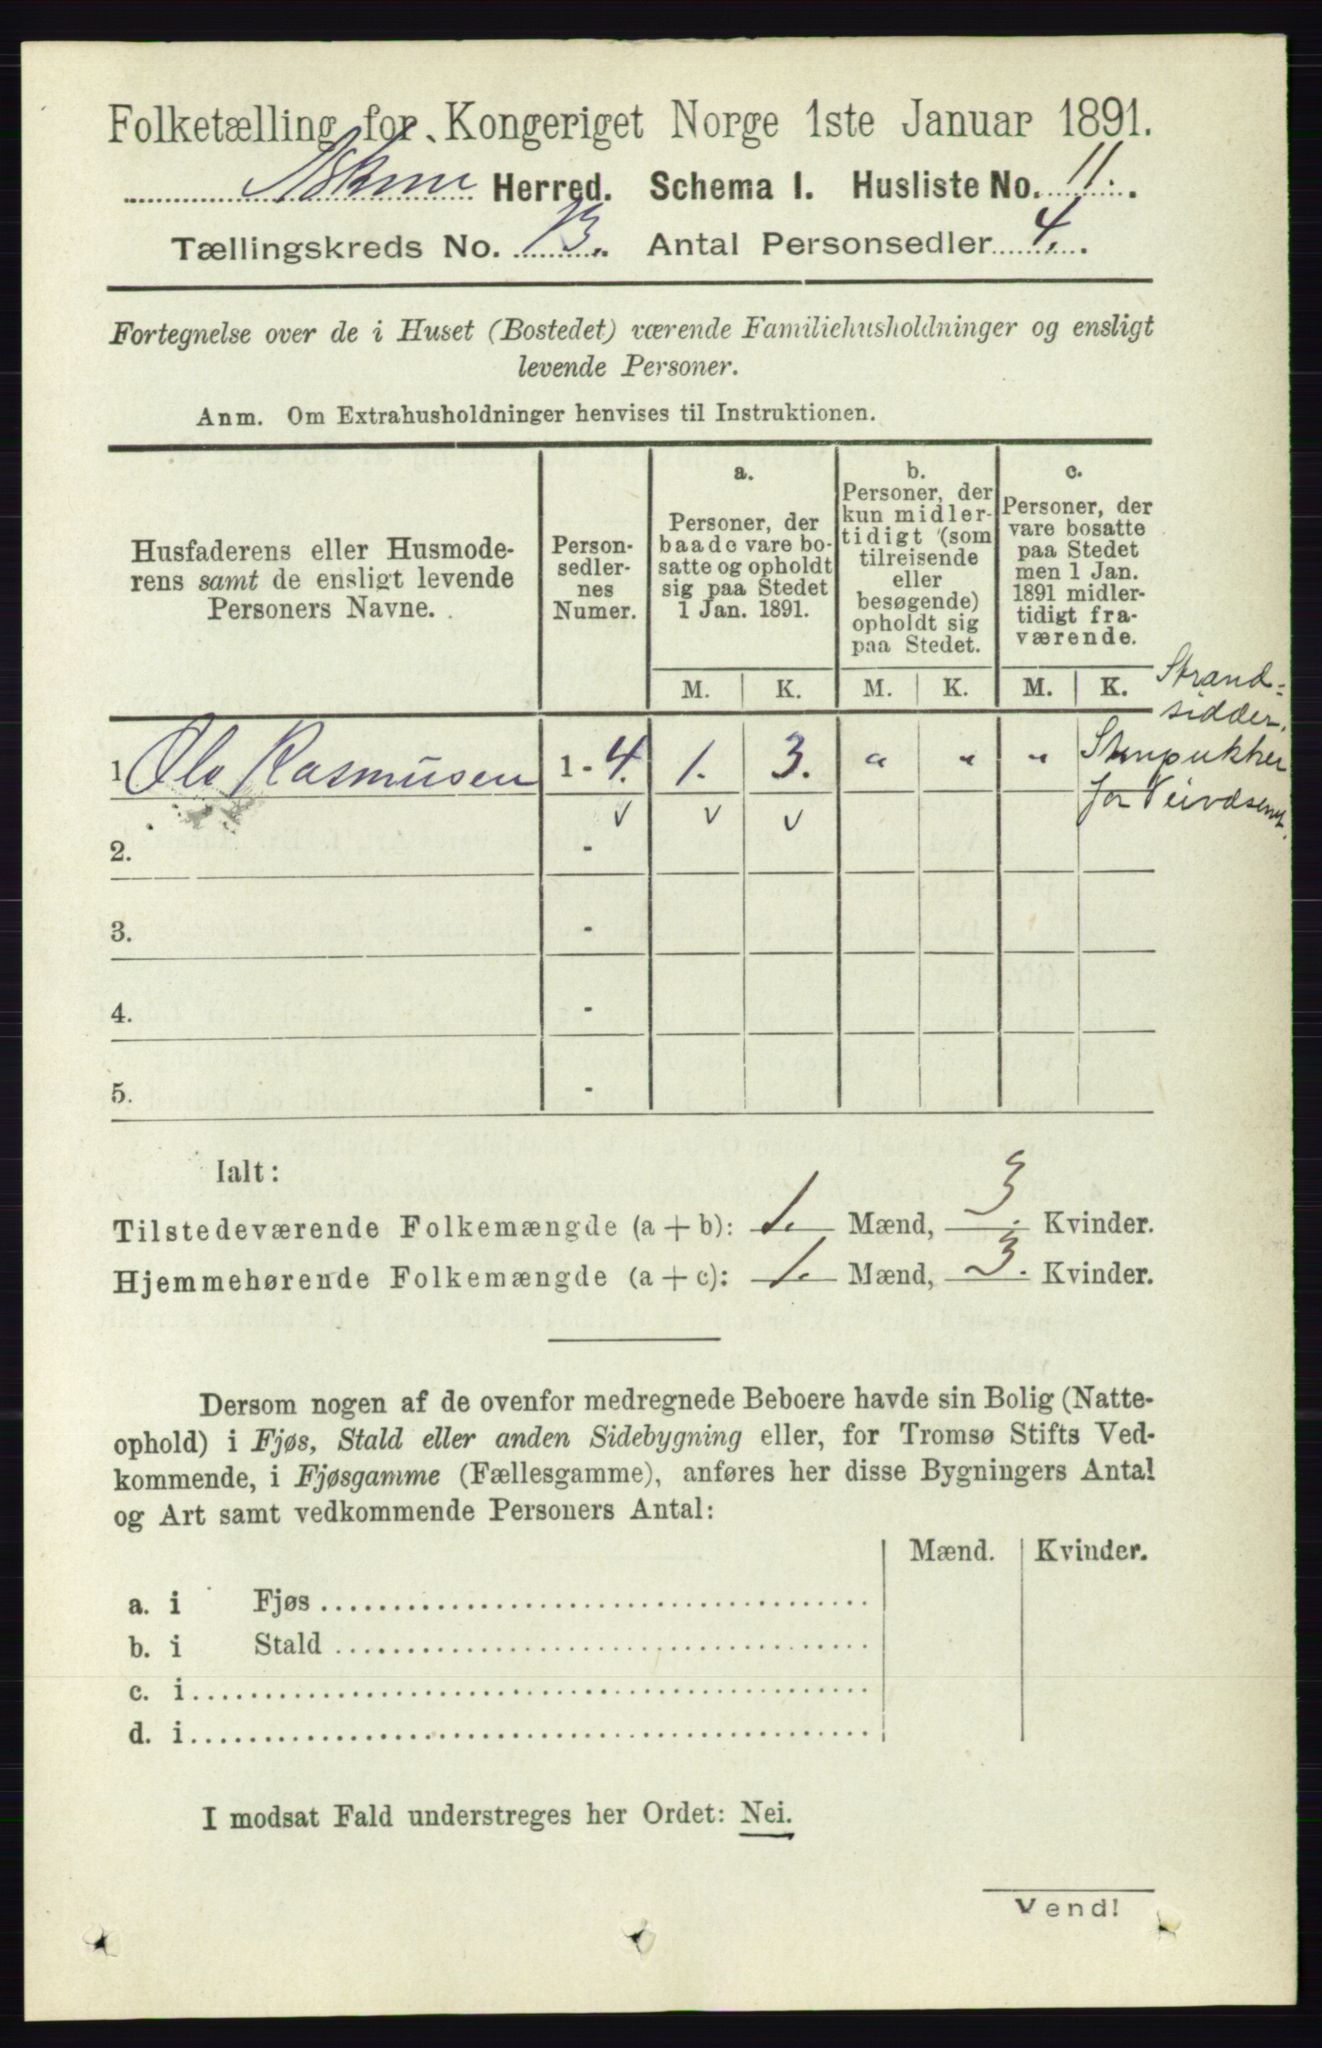 Folketælling for Kongeriget Norge 1ste Januar 1891.
Herred. Schema I. Husliste No. 11.
Tællingskreds No. 13. Antal Personsedler 4.
Fortegnelse over de i Huset (Bostedet) værende Familiehusholdninger og ensligt
levende Personer.
Anm. Om Extrahusholdninger henvises til Instruktionen.
Husfaderens eller Husmode-
rens samt de ensligt levende
Personers Navne.
Person-
sedler-
nes
Numer.
a.
Personer, der
baade vare bo-
satte og opholdt
sig paa Stedet
1 Jan. 1891.
b.
Personer, der
kun midler-
tidigt (som
tilreisende
eller
besøgende)
opholdt sig
paa Stedet.
c.
Personer, der
vare bosatte
paa Stedet
men 1 Jan.
1891 midler-
tidigt fra-
værende.
M. K. M. K. M. K.
Strand-
sidder,
1 Ole Rasmusen 1-4. 1. 3. " " "
for
v v v
2. -
3. -
4. -
5. -
Ialt:
Tilstedeværende Folkemængde (a + b): 1. Mænd, 3. Kvinder.
Hjemmehørende Folkemængde (a + c): 1. Mænd, 3. Kvinder.
Dersom nogen af de ovenfor medregnede Beboere havde sin Bolig (Natte-
ophold) i Fjøs, Stald eller anden Sidebygning eller, for Tromsø Stifts Ved-
kommende, i Fjøsgamme (Fællesgamme), anføres her disse Bygningers Antal
og Art samt vedkommende Personers Antal:
Mænd. Kvinder.
a. i Fjøs
b. i Stald
c. i
d. i
I modsat Fald understreges her Ordet: Nei.
Vend!